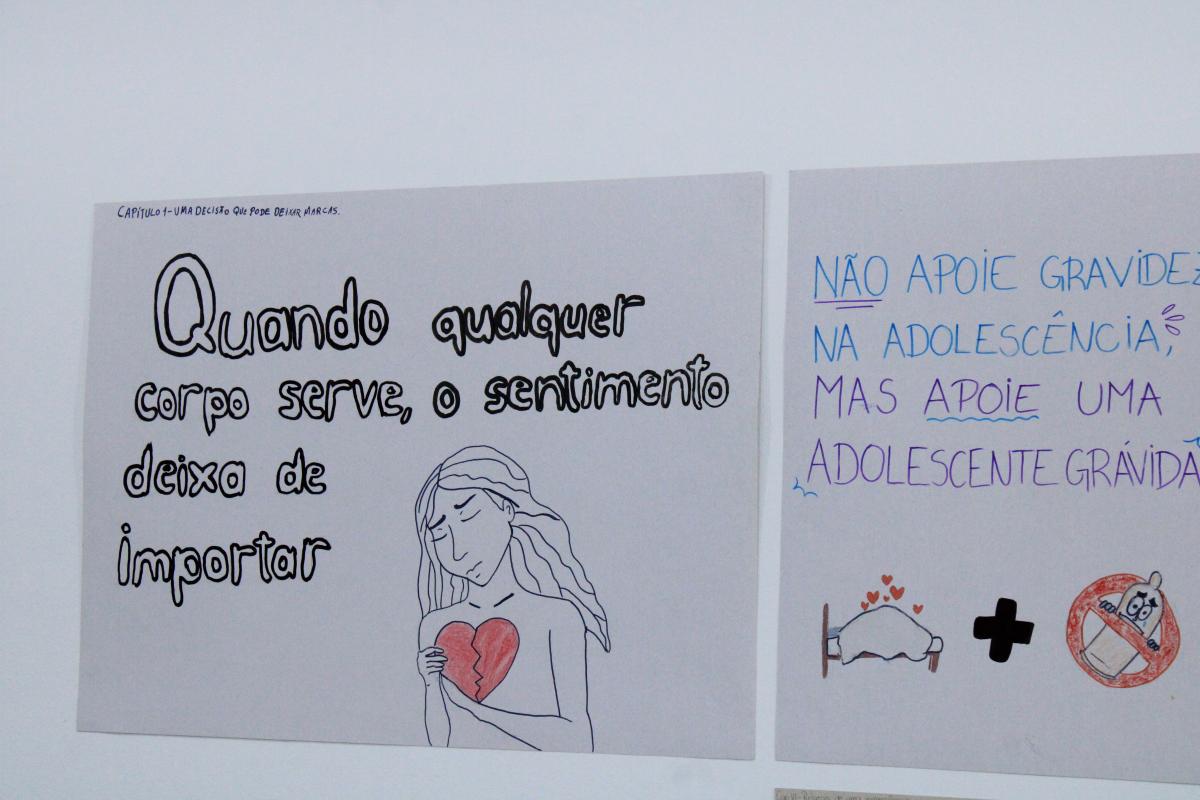 CAPÍTULO 1 - UMA DECISÃO QUE PODE DEIXAR MARCAS.
Quando qualquer
corpo serve, o sentimento
deixa de
importar
NÃO APOIE GRAVIDEZ
NA ADOLESCÊNCIA,
MAS APOIE UMA
ADOLESCENTE GRÁVIDA